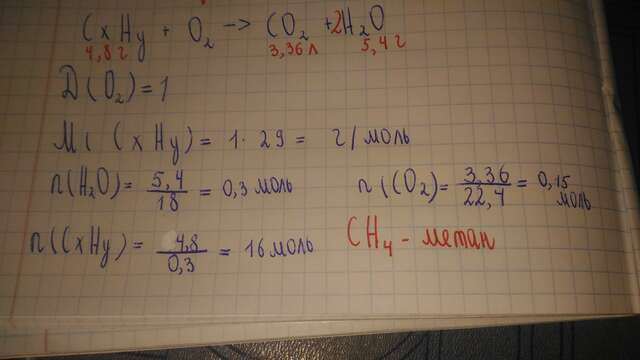 CxHy + O₂ -> CO₂ + 2H₂O
4,8 г 3,36 л 5,4 г
D(O₂) = 1
M( CxHy) = 1 · 29 = г/моль
n(H₂O) = 5,4/18 = 0,3 моль n(CO₂) = 3,36/22,4 = 0,15 моль
n(CxHy) = 4,8/0,3 = 16 моль CH₄ - метан